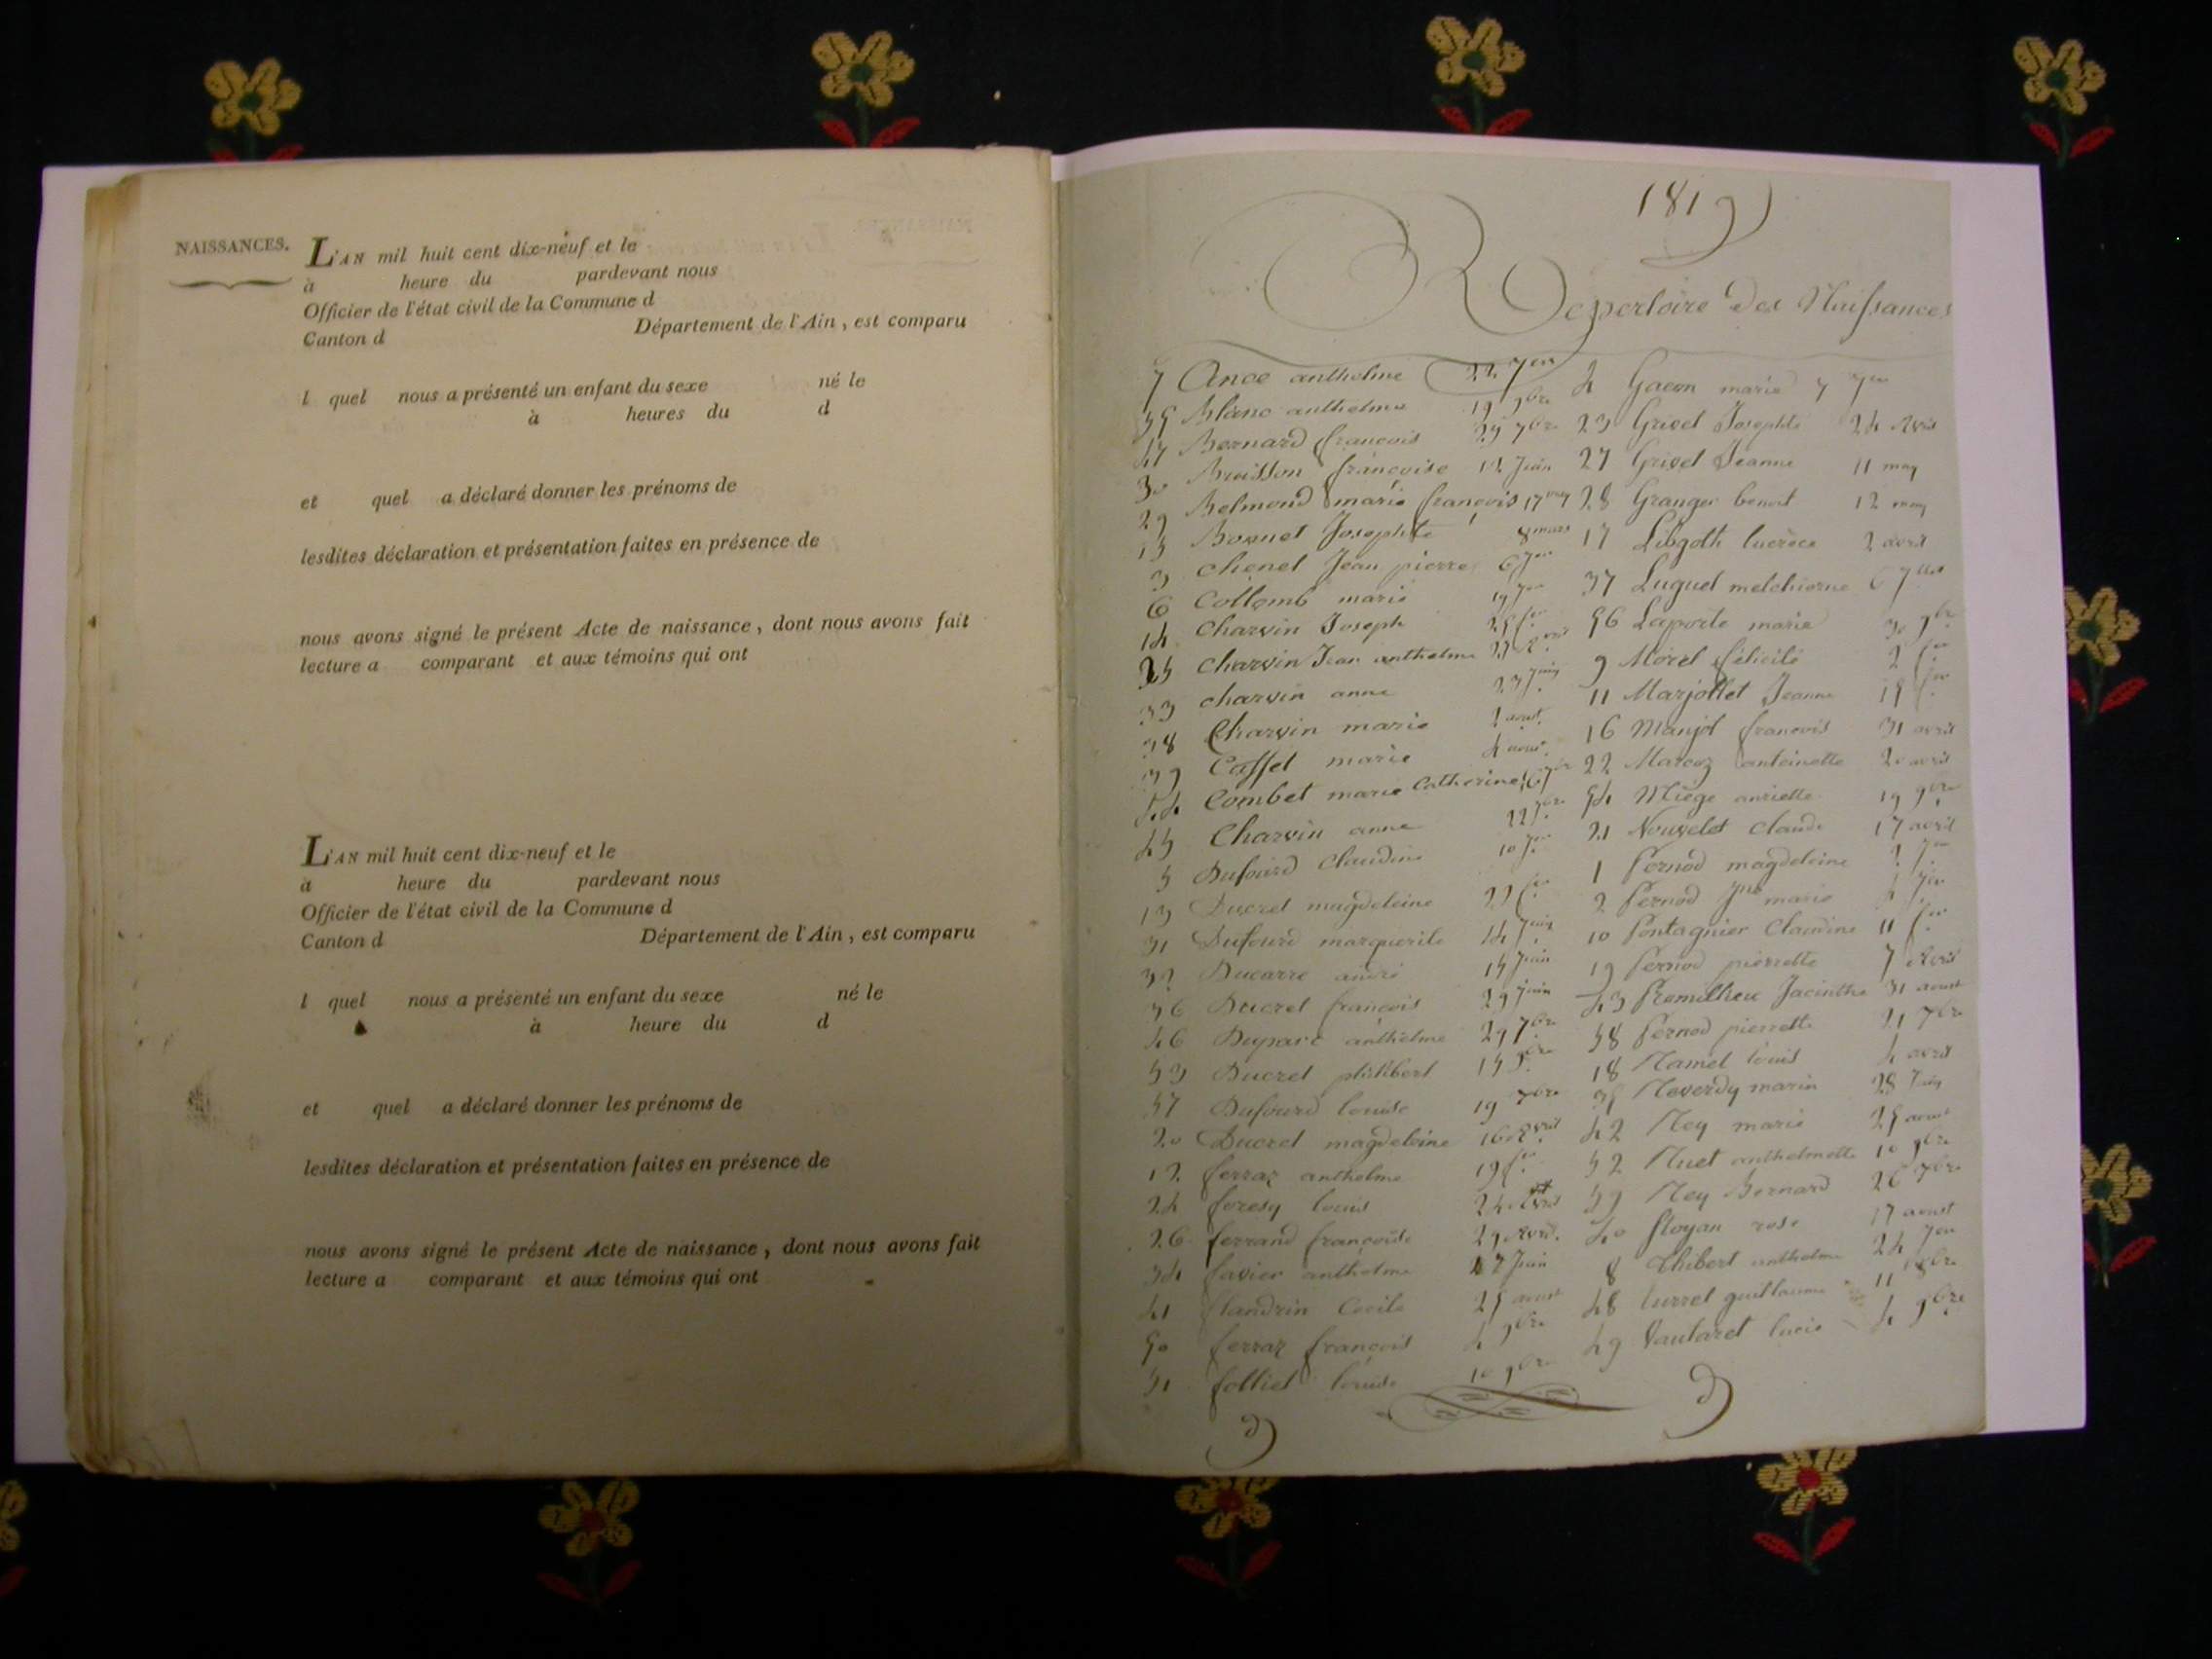 NAISSANCES.
L'AN mil huit cent dix-neuf et le
à heure du pardevant nous
Officier de l'état civil de la Commune d
Canton d Département de l'Ain, est comparu
l quel nous a présenté un enfant du sexe né le
à heures du d
et quel a déclaré donner les prénoms de
lesdites déclaration et présentation faites en présence de
nous avons signé le présent Acte de naissance, dont nous avons fait
lecture a comparant et aux témoins qui ont
L'AN mil huit cent dix-neuf et le
à heure du pardevant nous
Officier de l'état civil de la Commune d
Canton d Département de l'Ain, est comparu
l quel nous a présenté un enfant du sexe né le
à heure du d
et quel a déclaré donner les prénoms de
lesdites déclaration et présentation faites en présence de
nous avons signé le présent Acte de naissance, dont nous avons fait
lecture a comparant et aux témoins qui ont
1819
Repertoire Des Naissances
7 Ance anthelme 22 Jer
55 Blanc anthelme 19 9bre
47 Bernard francois 29 7bre
30 Buisson françoise 12 Juin
29 Belmond marie francois 17 may
15 Bonnet Josephte 8 mars
3 Chenel Jean pierre 6 Jer
6 Collomb marie 19 Jer
14 Charvin Joseph 25 fer
25 Charvin Jean anthelme
33 charvin anne 23 Juin
38 Charvin marie 2 aout
39 Cassel marie 4 aout
44 Combet marie Catherine
45 Charvin anne 22 7bre
5 Dufourd Claudine 10 Jer
13 Ducret magdeleine 22 fer
31 Dufourd marguerite 14 Juin
32 Ducarre andré 15 Juin
36 Ducret francois 29 Juin
46 anthelme 29 7bre
53 Ducret philibert 15 9bre
57 Dufourd louise 19
20 Ducret magdeleine 16 Avril
12 ferraz anthelme 19 fer
24 foresy louis 24 Avril
26 ferrand françoise 29 Avril
34 favier anthelme 27 Juin
41 flandrin Cecile 25 aoust
50 ferraz françois 4 9bre
51 folliet louise 10 9bre
4 Gacon marie 7 Jer
23 Grivel Josephte 24 Avril
27 Grivel Jeanne 11 may
28 Granger benoit 12 may
17 lucrèce 2 avril
37 Luguet melchiorne 6
56 Laporte marie 30 9bre
9 Morel félicité 2 fer
11 Marjollet Jeanne 15 fer
16 Manjol francois 31 avril
22 Marcoz antoinette 20 avril
54 Miège anriette 19 9bre
21 Nouvelet Claude 17 avril
1 Pernod magdeleine 2 Jer
2 Pernod Jne marie Jer
10 Pontagnier Claudine 11 fer
19 Pernod pierrette 7 Avril
43 Premilheu Jacinthe 31 aoust
58 Pernod pierrette 21
18 Ramel louis 4 avril
35 Reverdy marin 28 Juin
42 Rey marie 25 aoust
52 Ruet anthelmette 10 9bre
59 Rey Bernard 26
40 rose 17 aoust
8 Thibert anthelme 24 Jer
48 Turrel guillaume 11 8bre
49 Vautaret lucie 4 9bre